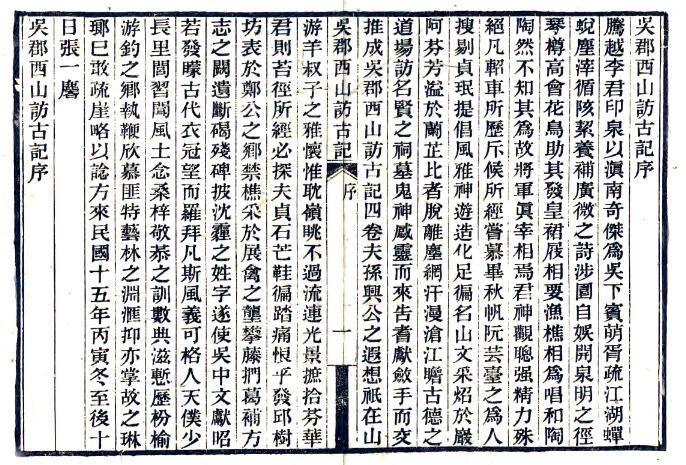 吳郡西山訪古記序
騰越李君印泉以滇南奇傑爲吳下賓萌胥疏江湖蟬
蛻塵滓循陔絜養補廣微之詩涉園自娛開泉明之徑
琴樽高會花鳥助其發皇裙屐相要漁樵相爲唱和陶
陶然不知其爲故將軍眞宰相焉君神觀聰强精力殊
絕凡軺車所歷斥候所經嘗慕畢秋帆阮芸臺之爲人
搜剔貞珉提倡風雅神遊造化足徧名山文采炤於巖
阿芬芳溢於蘭芷比者脫離塵網汗漫滄江瞻古德之
道場訪名賢之祠墓鬼神感靈而來告耆獻斂手而交
推成吳郡西山訪古記四卷夫孫興公之遐想祇在山
吳郡西山訪古記 序 一
游羊叔子之雅懷惟耽嶺眺不過流連光景摭拾芬華
君則苔徑所經必探夫貞石芒鞋徧踏痛恨乎發邱樹
坊表於鄭公之鄉禁樵采於展禽之壟攀藤捫葛補方
志之闕遺斷碣殘碑披沈霾之姓字遂使吳中文獻昭
若發矇古代衣冠望而羅拜凡斯風義可格人天僕少
長里閭習聞風土念桑梓敬恭之訓數典滋慙歷枌榆
游釣之鄉執鞭欣慕匪特藝林之淵滙抑亦掌故之琳
瑯已敢疏崖略以諗方來民國十五年丙寅冬至後十
日張一麐
吳郡西山訪古記序